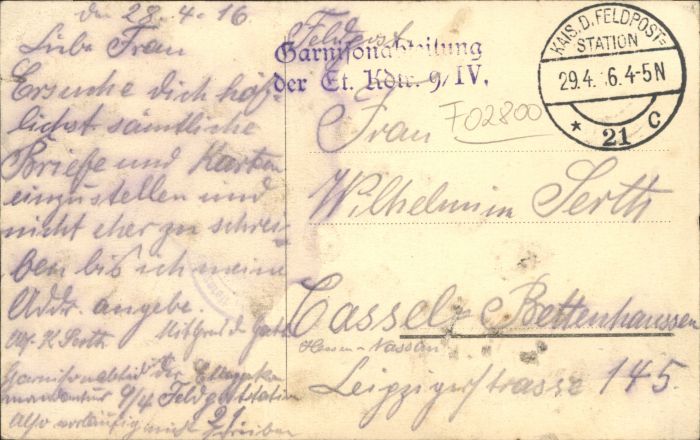 den 28.4.16
Liebe Frau
Ersuche dich höf-
lichst sämtliche
Briefe und Karten
einzustellen und
nicht eher zu schrei-
ben bis ich meine
Addr. angebe.
Mit Gruß
Garnisonabteil der Etappenko
mmandantur 9/4 Feldpoststation
21
Also vorläufig nicht schreiben
Feldpost
Garnisonabteilung
der Et. Kdtr. 9/IV.
KAIS. D. FELDPOST=
STATION
29.4.16.4-5N
* 21 c
F02800
Frau
Wilhelmin Serth
Cassel = Bettenhaussen
Hessen-Nassau
Leipzigerstrasse 145.